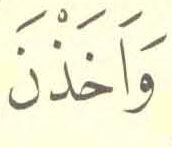 وَاَخَذْنَ